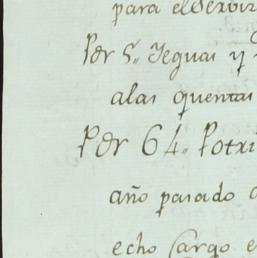 para el Servi
Por 5. Yeguas y
a las quentas
Por 64. Potri
año pasado
echo Cargo e